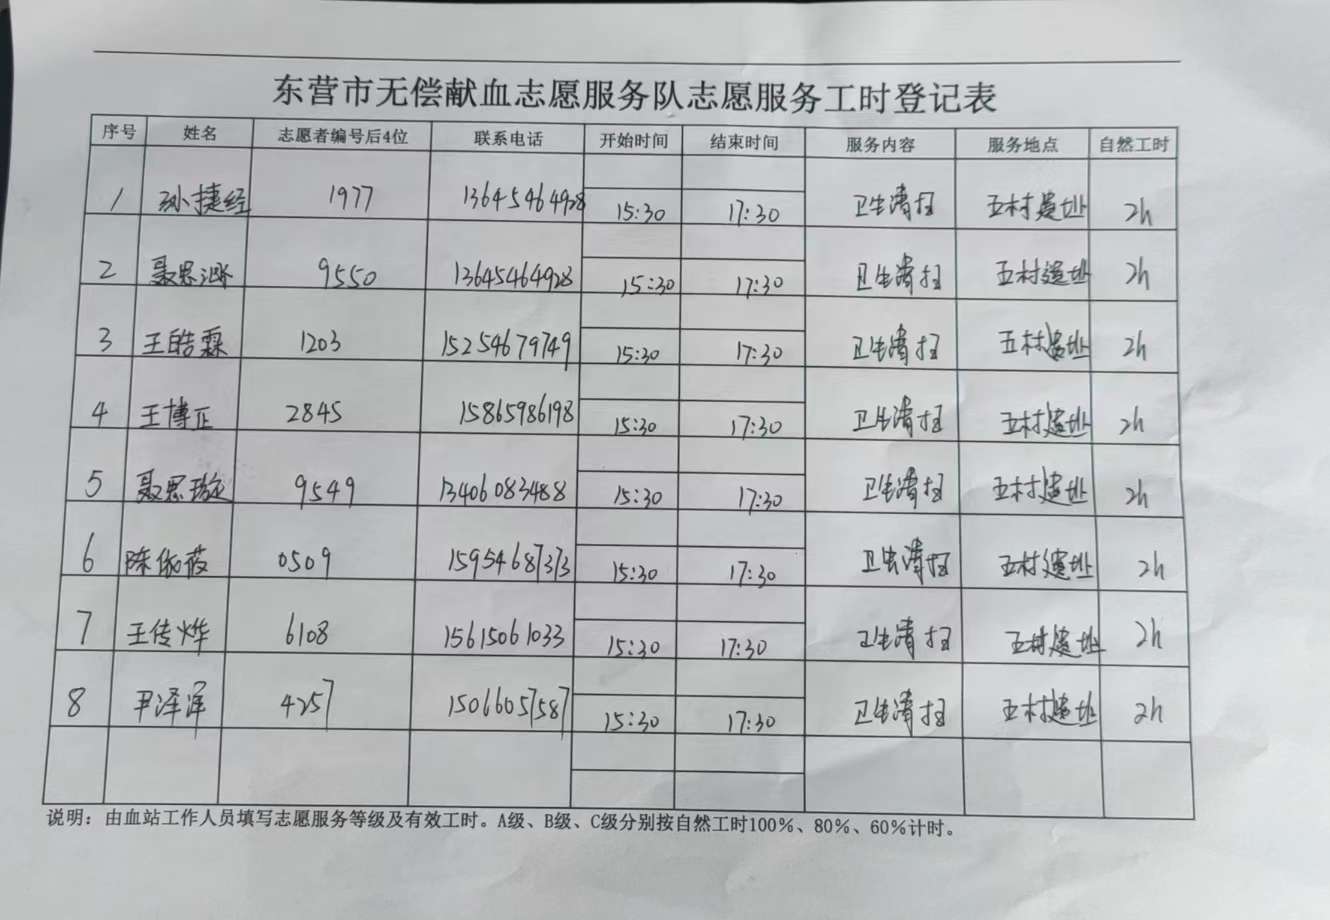 东营市无偿献血志愿服务队志愿服务工时登记表
序号 姓名 志愿者编号后4位 联系电话 开始时间 结束时间 服务内容 服务地点 自然工时
1 孙捷经 1977 13645464928 15:30 17:30 卫生清扫 五村遗址 2h
2 聂思 9550 13645464928 15:30 17:30 卫生清扫 五村遗址 2h
3 王皓霖 1203 15254679749 15:30 17:30 卫生清扫 五村遗址 2h
4 王博正 2845 15865986198 15:30 17:30 卫生清扫 五村遗址 2h
5 聂思 9549 13406083488 15:30 17:30 卫生清扫 五村遗址 2h
6 陈依葭 0509 15954687373 15:30 17:30 卫生清扫 五村遗址 2h
7 王传烨 6108 15615061033 15:30 17:30 卫生清扫 五村遗址 2h
8 尹泽泽 4257 15066057587 15:30 17:30 卫生清扫 五村遗址 2h
说明：由血站工作人员填写志愿服务等级及有效工时。A级、B级、C级分别按自然工时100%、80%、60%计时。